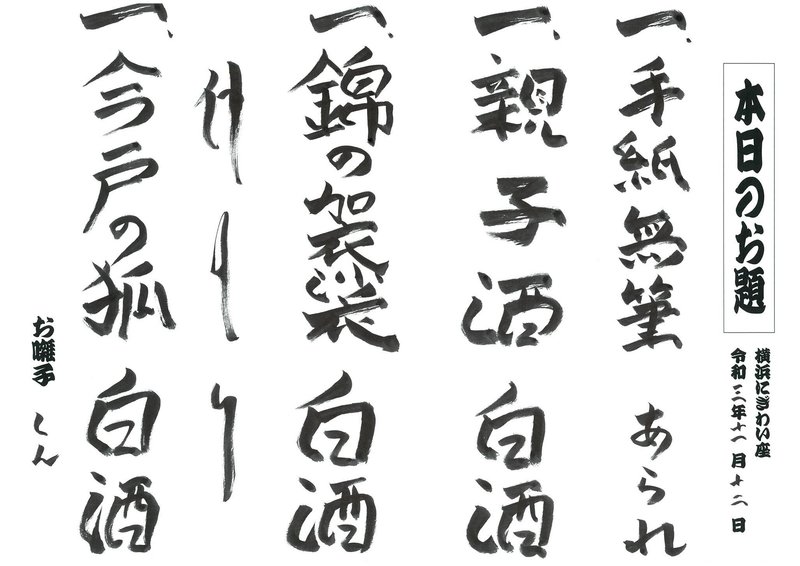 本日のお題
横浜にぎわい座
令和三年十一月十二日
一、手紙無筆 あられ
一、親子酒 白酒
一、錦の袈裟 白酒
仲入り
一、今戸の狐 白酒
お囃子 しん